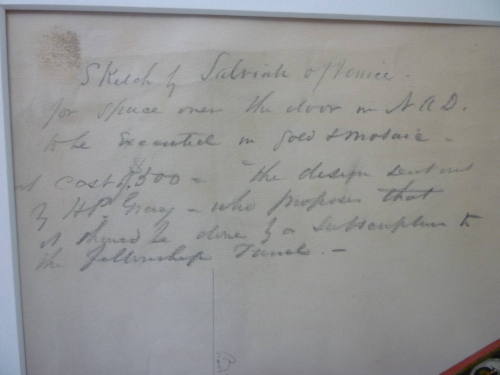 Sketch by Salviati of Venice.
for space over the door in N A D.
to be executed in gold & mosaic –
at cost $1,500 – the design sent me
by H.P. Gray – who proposes that
it should be done by a subscription to
the fellowship Fund. –